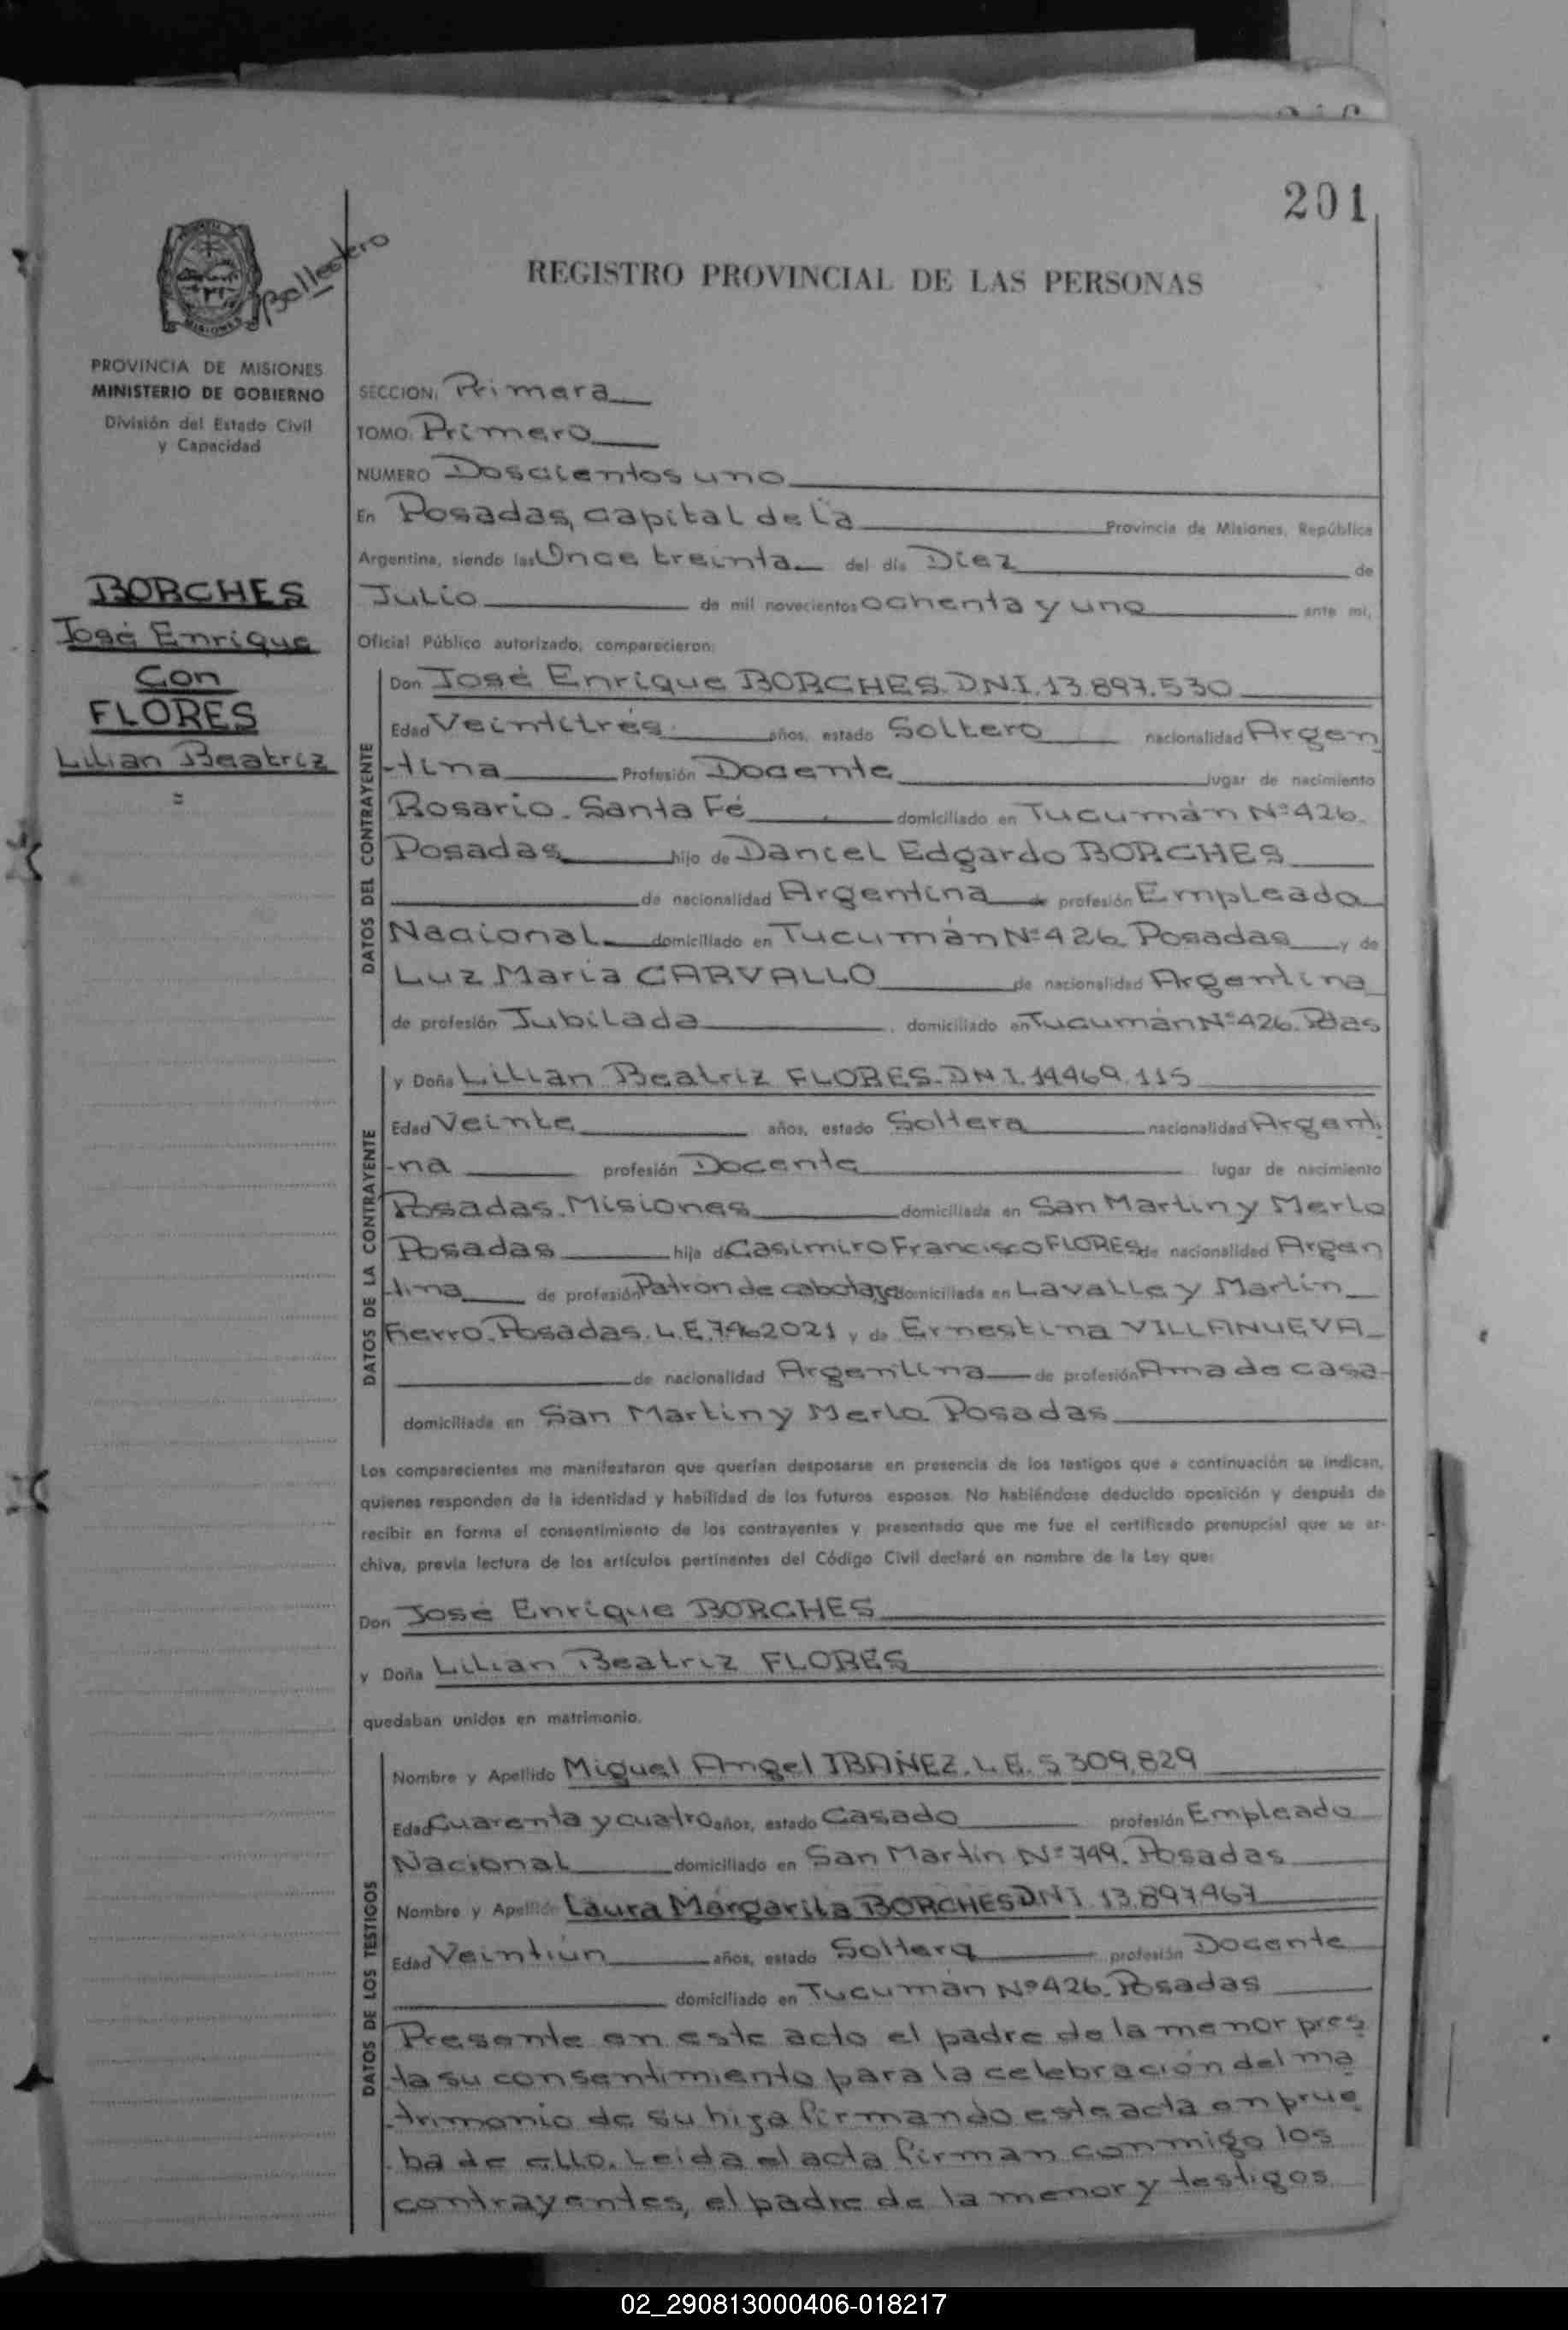 201
Ballestero
REGISTRO PROVINCIAL DE LAS PERSONAS
MISIONES
PROVINCIA DE MISIONES
MINISTERIO DE GOBIERNO
División del Estado Civil
y Capacidad
BORCHES
José Enrique
Con
FLORES
Lilian Beatriz
=
SECCION: Primera
TOMO: Primero
NUMERO Doscientos uno
En Posadas, capital de la Provincia de Misiones, República
Argentina, siendo las Once treinta del día Diez de
Julio de mil novecientos ochenta y uno ante mí,
Oficial Público autorizado, comparecieron:
DATOS DEL CONTRAYENTE
Don José Enrique BORCHES. D.N.I. 13.897.530
Edad Veintitrés años, estado Soltero nacionalidad Argen
-tina Profesión Docente lugar de nacimiento
Rosario. Santa Fé domiciliado en Tucumán Nº 426.
Posadas hijo de Daniel Edgardo BORCHES
de nacionalidad Argentina de profesión Empleado
Nacional domiciliado en Tucumán Nº 426. Posadas y de
Luz María CARVALLO de nacionalidad Argentina
de profesión Jubilada, domiciliado en Tucumán Nº 426. Pdas
DATOS DE LA CONTRAYENTE
y Doña Lilian Beatriz FLORES. DNI. 14.469.115
Edad Veinte años, estado Soltera nacionalidad Argenti
-na profesión Docente lugar de nacimiento
Posadas. Misiones domiciliada en San Martin y Merlo
Posadas hija de Casimiro Francisco FLORES de nacionalidad Argen
-tina de profesión Patrón de cabotaje domiciliada en Lavalle y Martín
Fierro. Posadas. L.E. 7.462021 y de Ernestina VILLANUEVA
de nacionalidad Argentina de profesión Ama de casa-
domiciliada en San Martin y Merlo Posadas
Los comparecientes me manifestaron que querían desposarse en presencia de los testigos que a continuación se indican,
quienes responden de la identidad y habilidad de los futuros esposos. No habiéndose deducido oposición y después de
recibir en forma el consentimiento de los contrayentes y presentado que me fue el certificado prenupcial que se ar-
chiva, previa lectura de los artículos pertinentes del Código Civil declaré en nombre de la Ley que:
Don José Enrique BORCHES
y Doña Lilian Beatriz FLORES
quedaban unidos en matrimonio.
DATOS DE LOS TESTIGOS
Nombre y Apellido Miguel Angel IBAÑEZ. L.E. 5309.829
Edad Cuarenta y cuatro años, estado Casado profesión Empleado
Nacional domiciliado en San Martín Nº 749. Posadas
Nombre y Apellido Laura Margarita BORCHES DNI 13.897467
Edad Veintiún años, estado Soltera profesión Docente
domiciliado en Tucumán Nº 426. Posadas
Presente en este acto el padre de la menor pres
ta su consentimiento para la celebración del ma
trimonio de su hija firmando este acta en prue
ba de ello. Leida el acta firman conmigo los
contrayentes, el padre de la menor y testigos
02_290813000406-018217